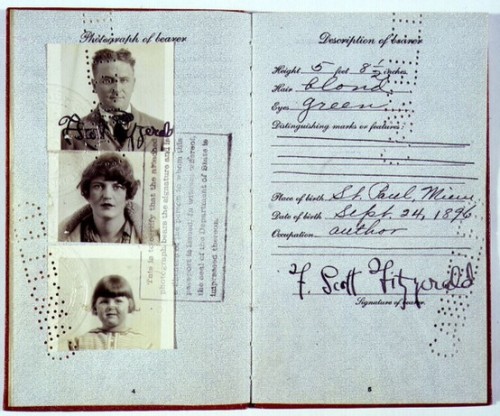 Photograph of bearer
F. Scott Fitzgerald
This is to certify that the attached
photograph bears the signature and is
a likeness of the person to whom this
passport is issued. In witness whereof,
the seal of the Department of State is
impressed thereon.
4
Description of bearer
Height 5 feet 8 1/2 inches.
Hair blond
Eyes green
Distinguishing marks or features:
Place of birth St. Paul, Minn
Date of birth Sept. 24, 1896
Occupation author
F. Scott Fitzgerald
Signature of bearer.
5